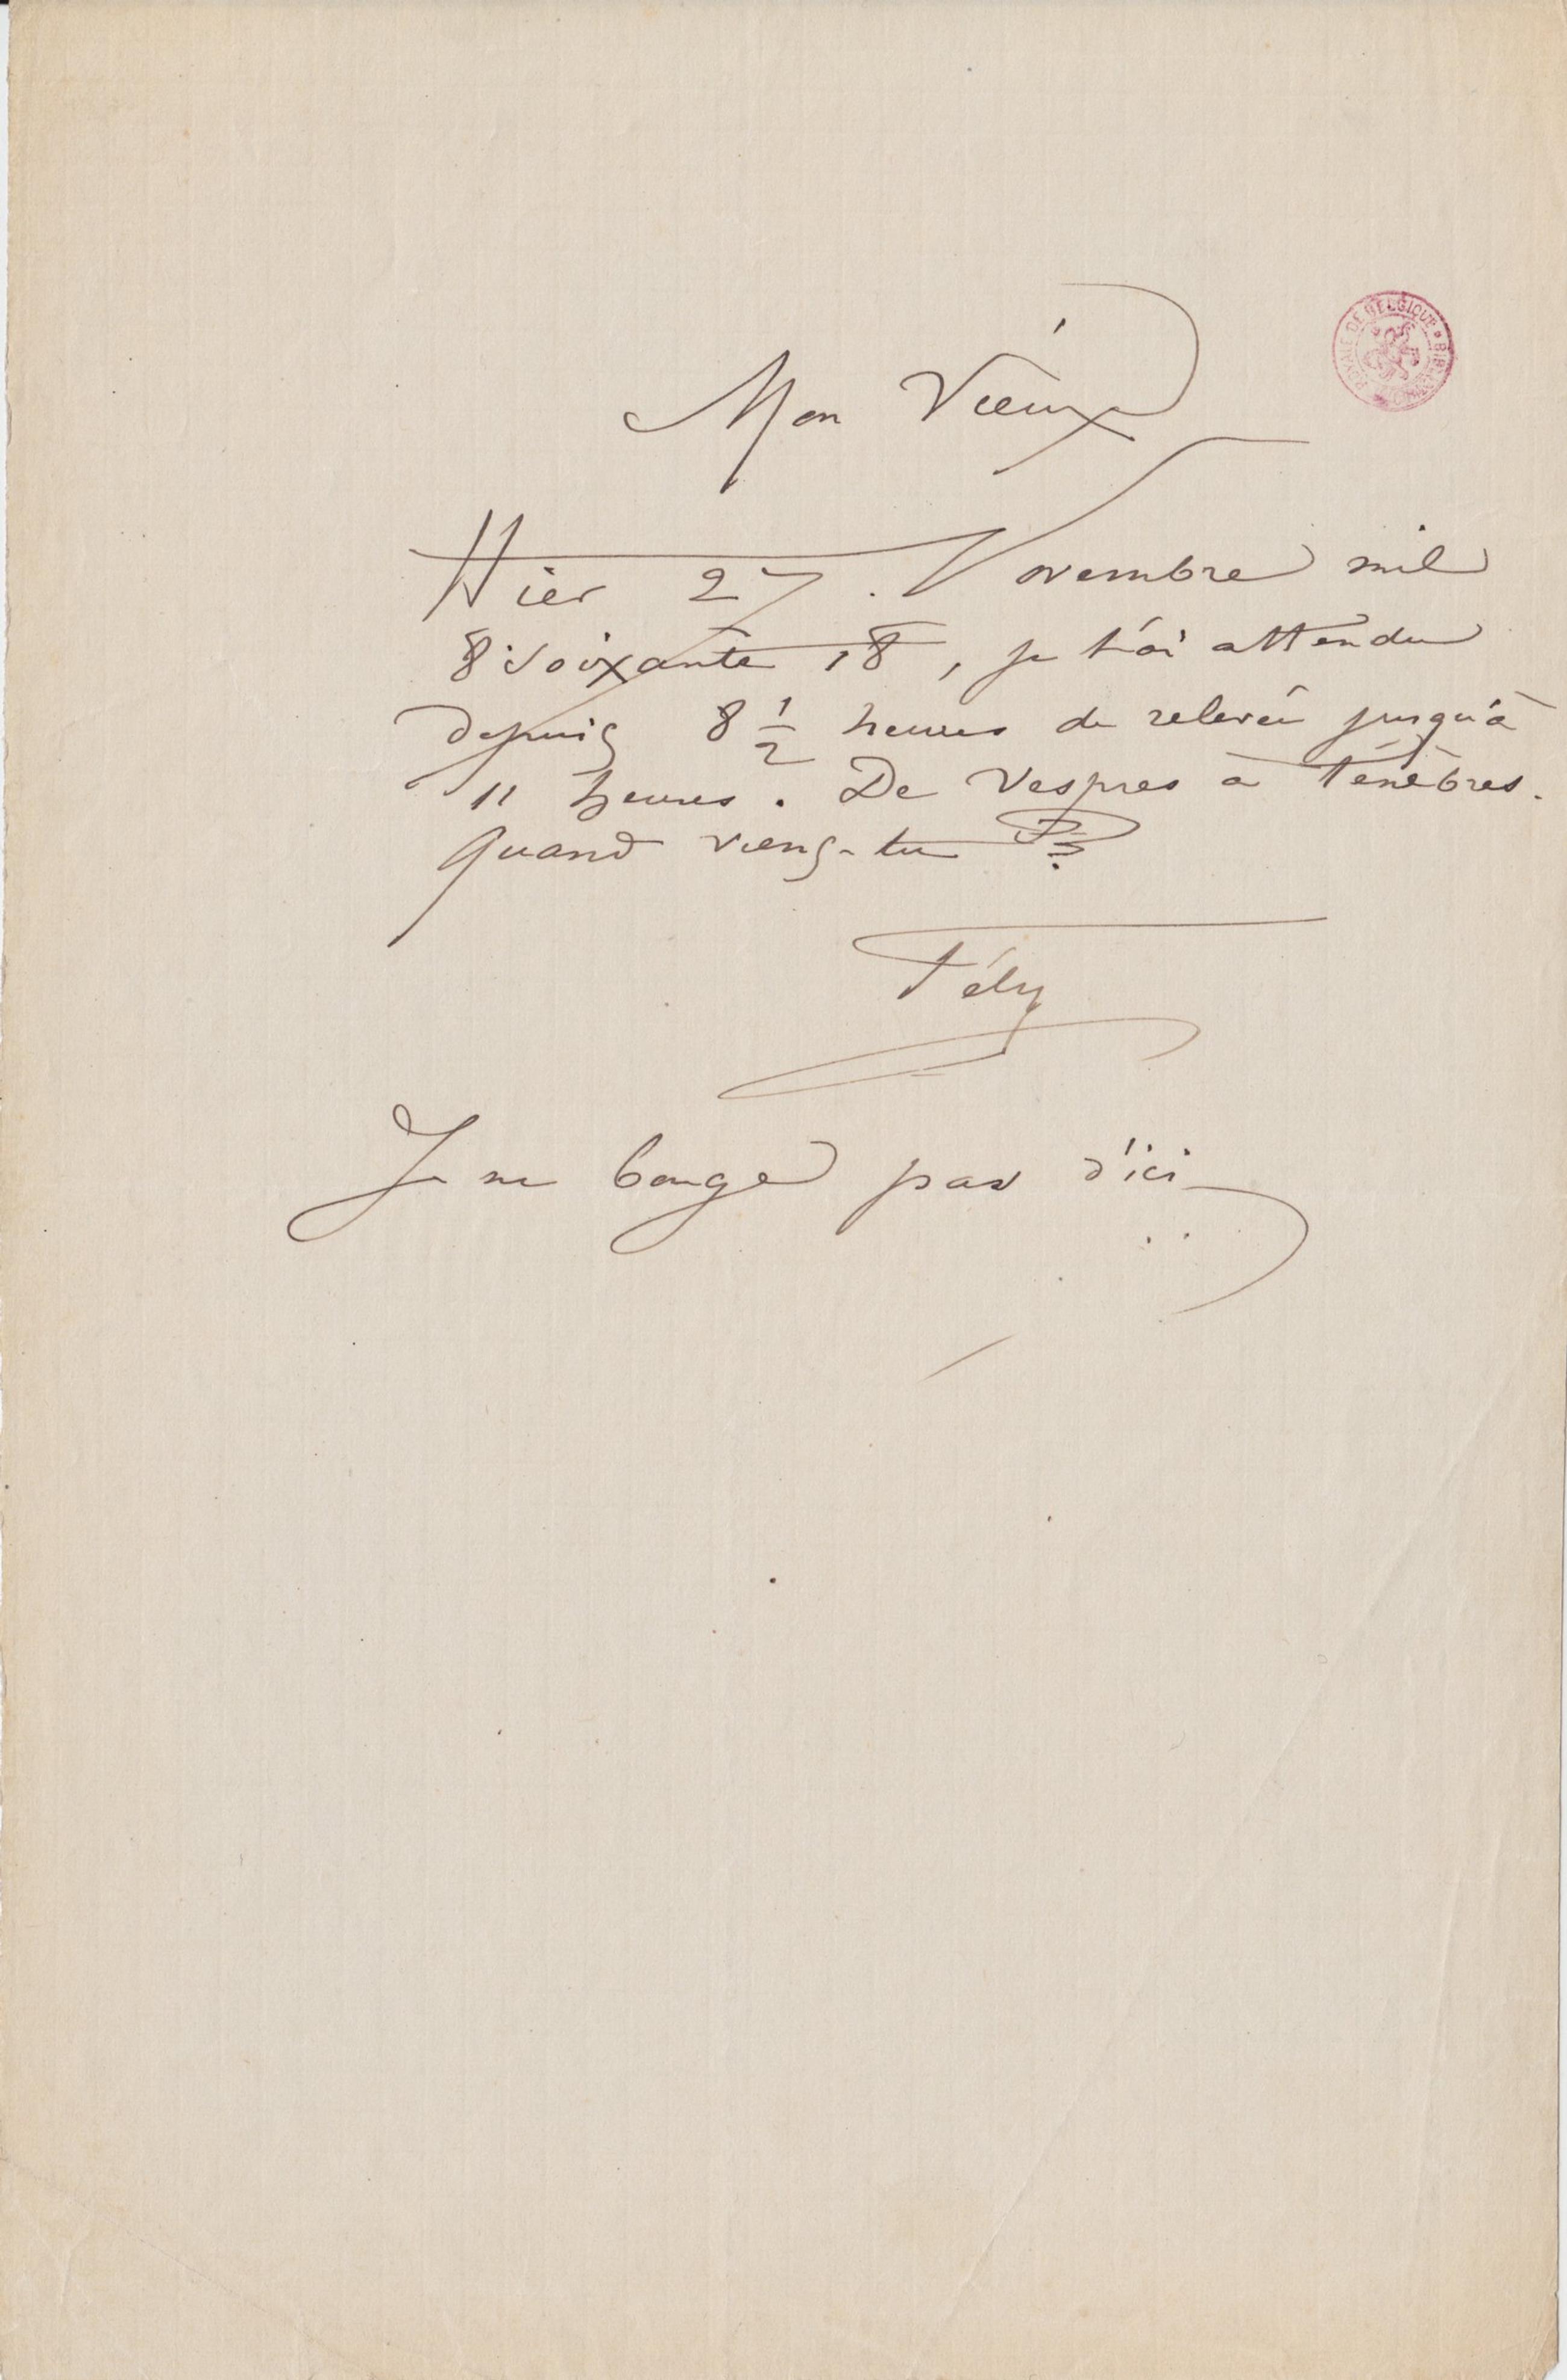 Mon Vieux
BIBLIOTHÈQUE ROYALE DE BELGIQUE
Hier 27. Novembre mil
8 soixante 18, je t'ai attendu
depuis 8 1/2 heures de relevée jusqu'à
11 heures. De Vespres à Ténèbres.
Quand viens-tu ??
Fély
Je ne bouge pas d'ici